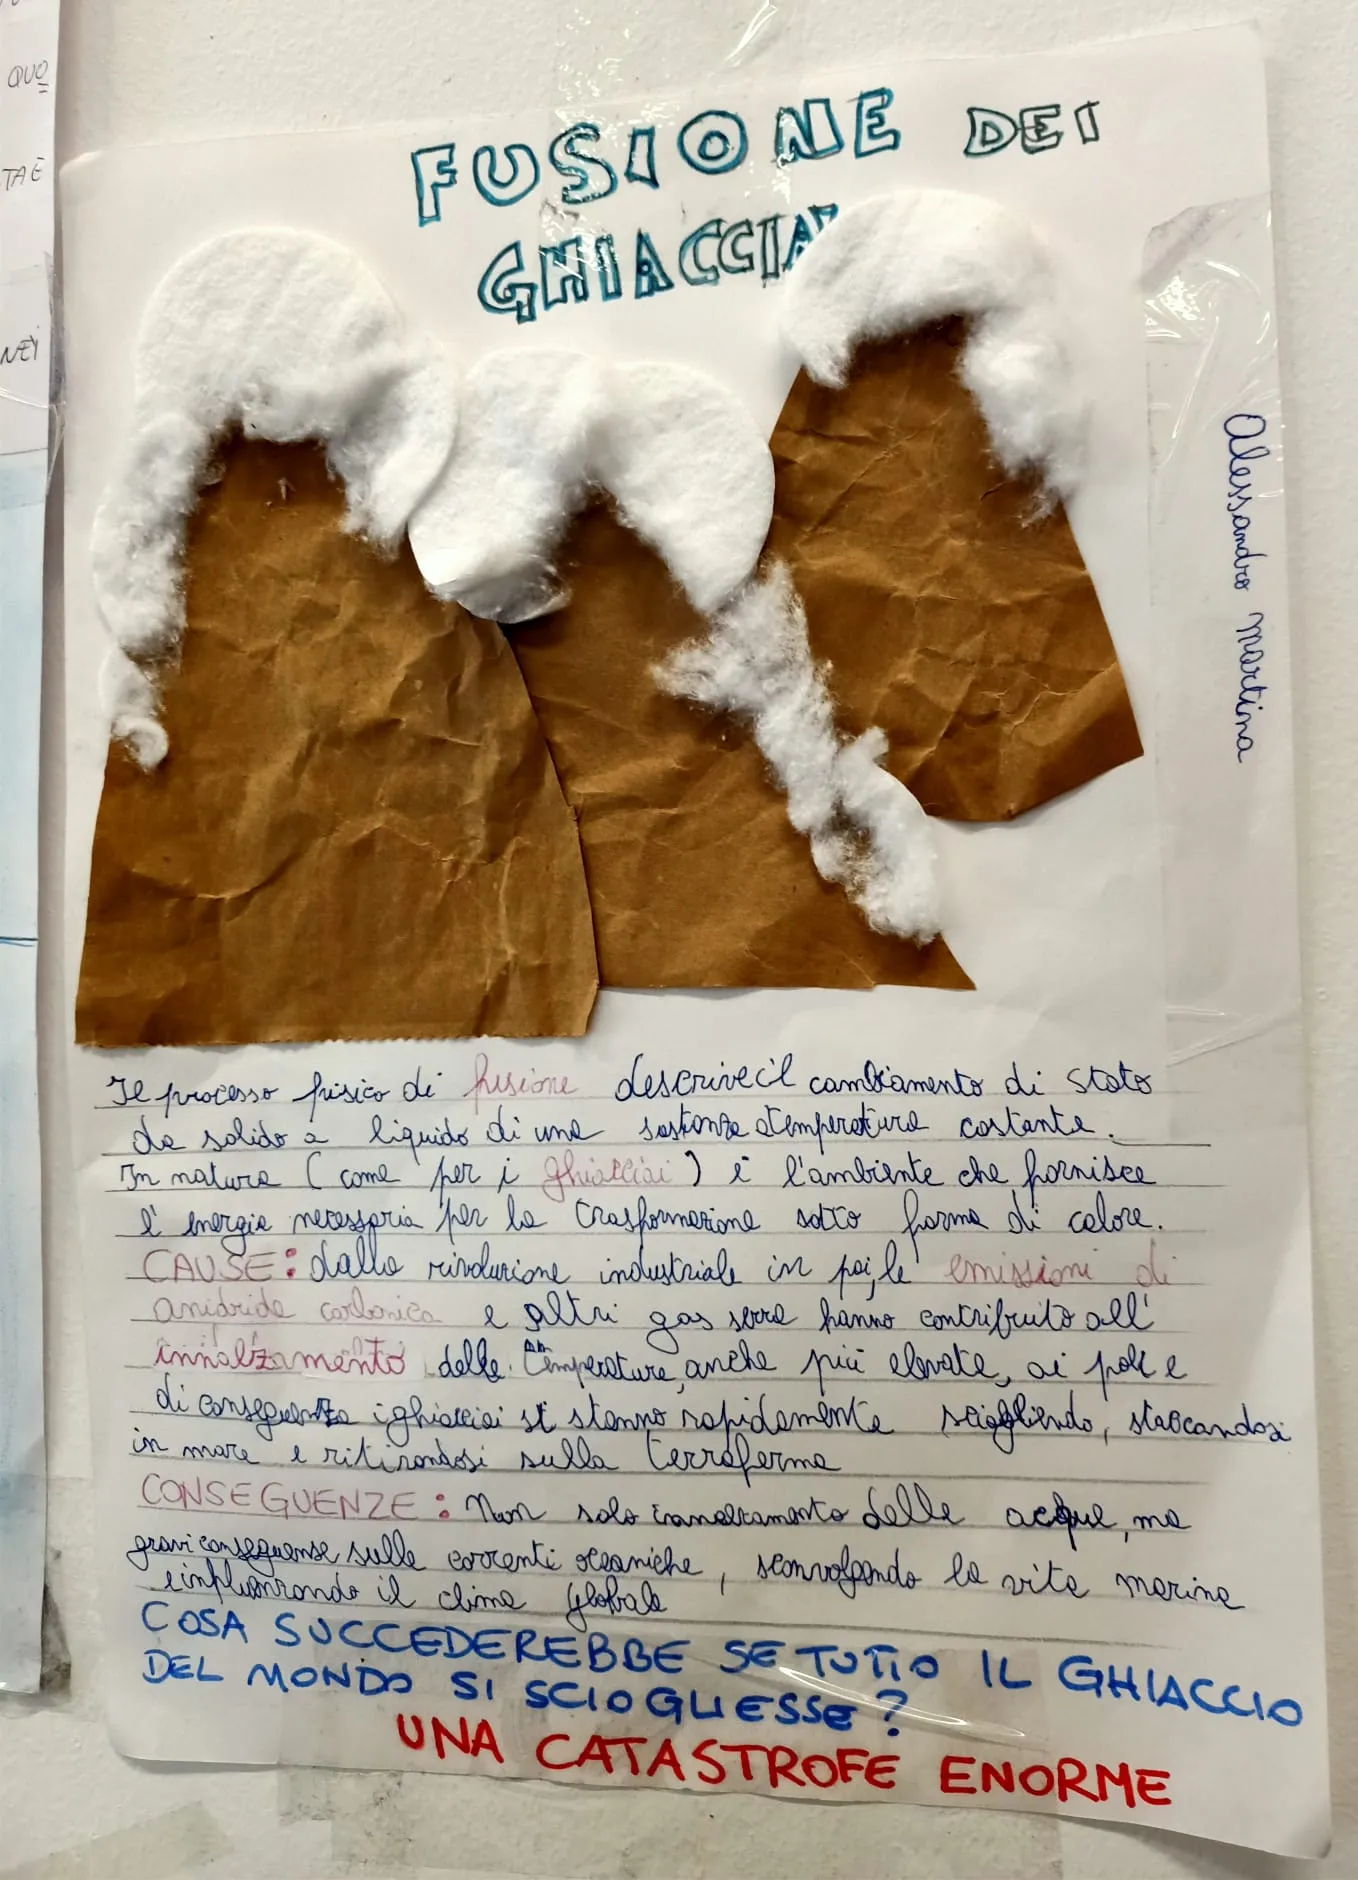 QUO
TA E
NEI
FUSIONE DEI
GHIACCIA
Alessandro Martina
Il processo fisico di fusione descrive il cambiamento di stato
da solido a liquido di una sostanza a temperatura costante.
In natura (come per i ghiacciai) è l'ambiente che fornisce
l'energia necessaria per la trasformazione sotto forma di calore.
CAUSE: dalla rivoluzione industriale in poi, le emissioni di
anidride carbonica e altri gas serra hanno contribuito all'
innalzamento delle temperature, anche più elevate, ai poli e
di conseguenza i ghiacciai si stanno rapidamente sciogliendo, staccandosi
in mare e ritirandosi sulla terraferma
CONSEGUENZE: Non solo innalzamento delle acque, ma
gravi conseguenze sulle correnti oceaniche, sconvolgendo la vita marina
e influenzando il clima globale
COSA SUCCEDEREBBE SE TUTTO IL GHIACCIO
DEL MONDO SI SCIOGLIESSE?
UNA CATASTROFE ENORME